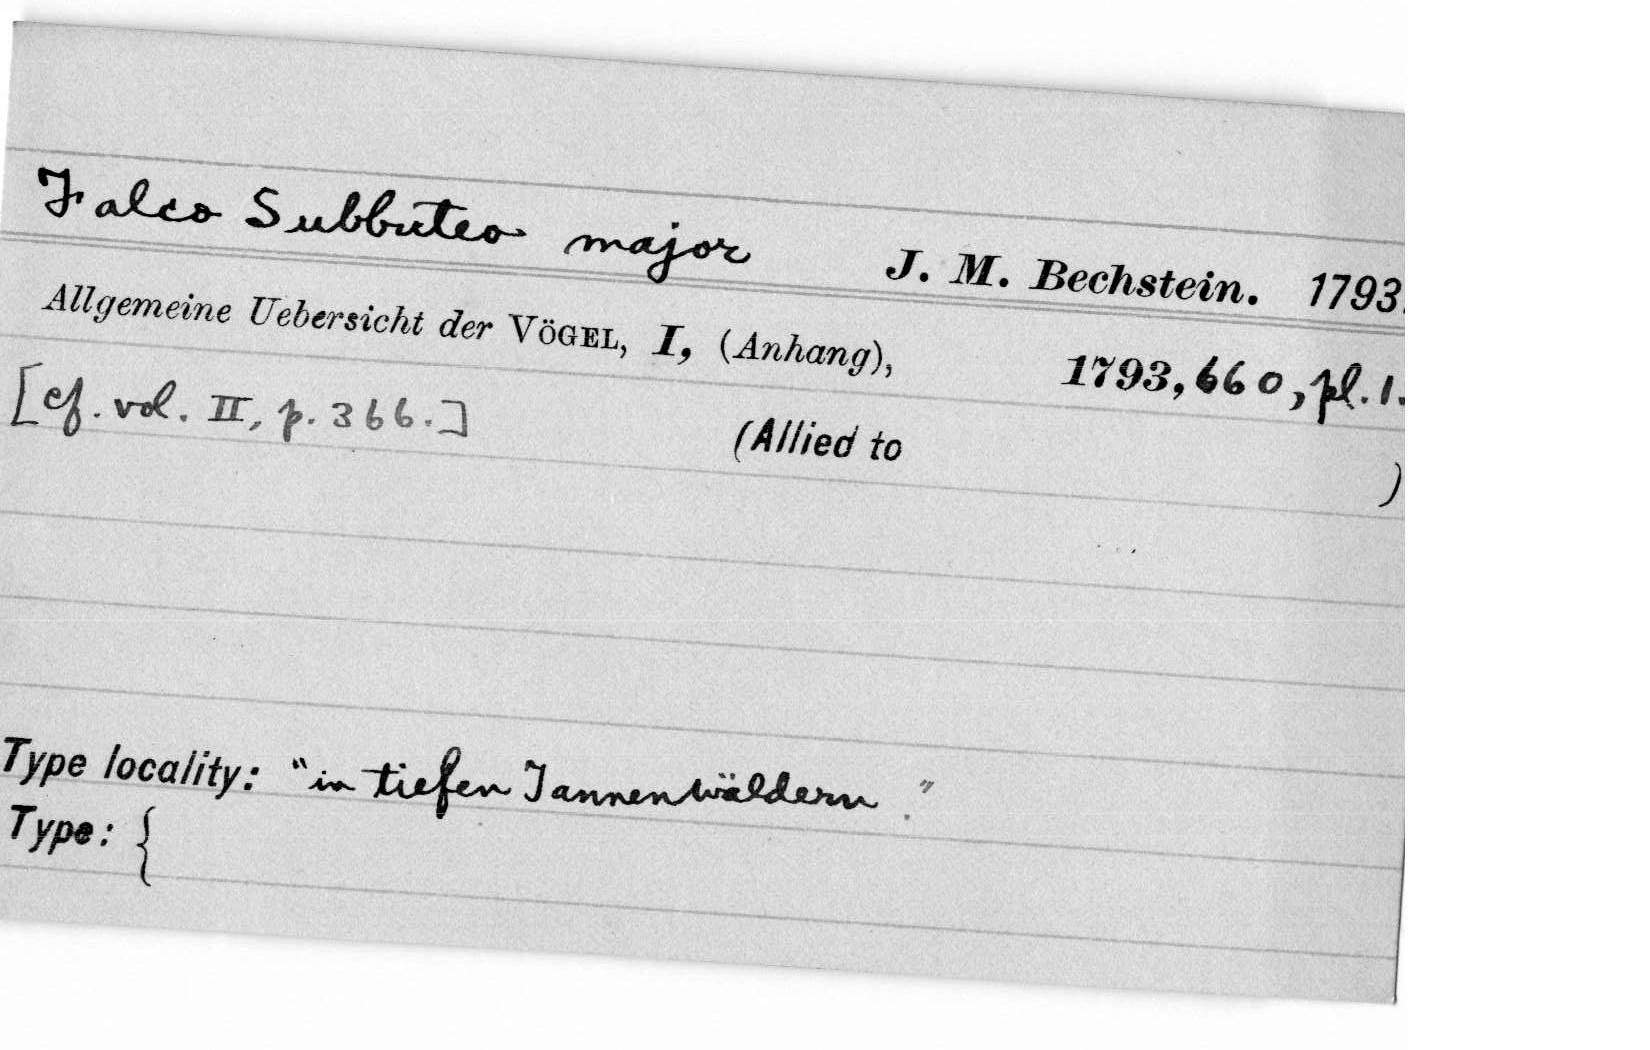 Falco Subbuteo major J. M. Bechstein. 1793.
Allgemeine Uebersicht der VÖGEL, I, (Anhang), 1793, 660, pl. 1.
[cf. vol. II, p. 366.]
(Allied to )
Type locality: "in tiefen Tannenwäldern."
Type: {